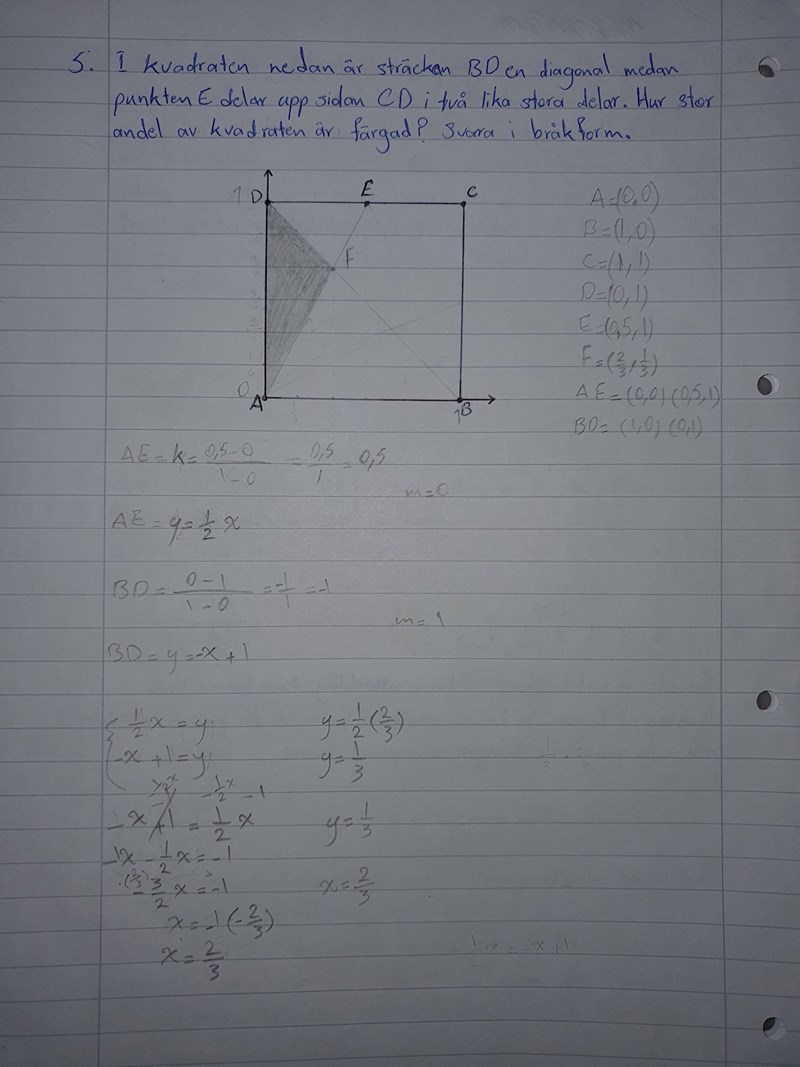 5. I kvadraten nedan är sträckan BD en diagonal medan
punkten E delar upp sidan CD i två lika stora delar. Hur stor
andel av kvadraten är färgad? Svara i bråkform.
1 D E C
F
0 A 1 B
A=(0,0)
B=(1,0)
C=(1,1)
D=(0,1)
E=(0,5,1)
F=(2/3,1/3)
AE=(0,0)(0,5,1)
BD=(1,0)(0,1)
AE=k=(0,5-0)/(1-0)=0,5/1=0,5
m=0
AE=y=1/2 x
BD=(0-1)/(1-0)=-1/1=-1
m=1
BD=y=-x+1
{ 1/2 x=y
-x+1=y
-1/2 x -1
-x+1=1/2 x
-1x-1/2 x=-1
-3/2 x=-1
x=-1(-2/3)
x=2/3
y=1/2(2/3)
y=1/3
y=1/3
x=2/3